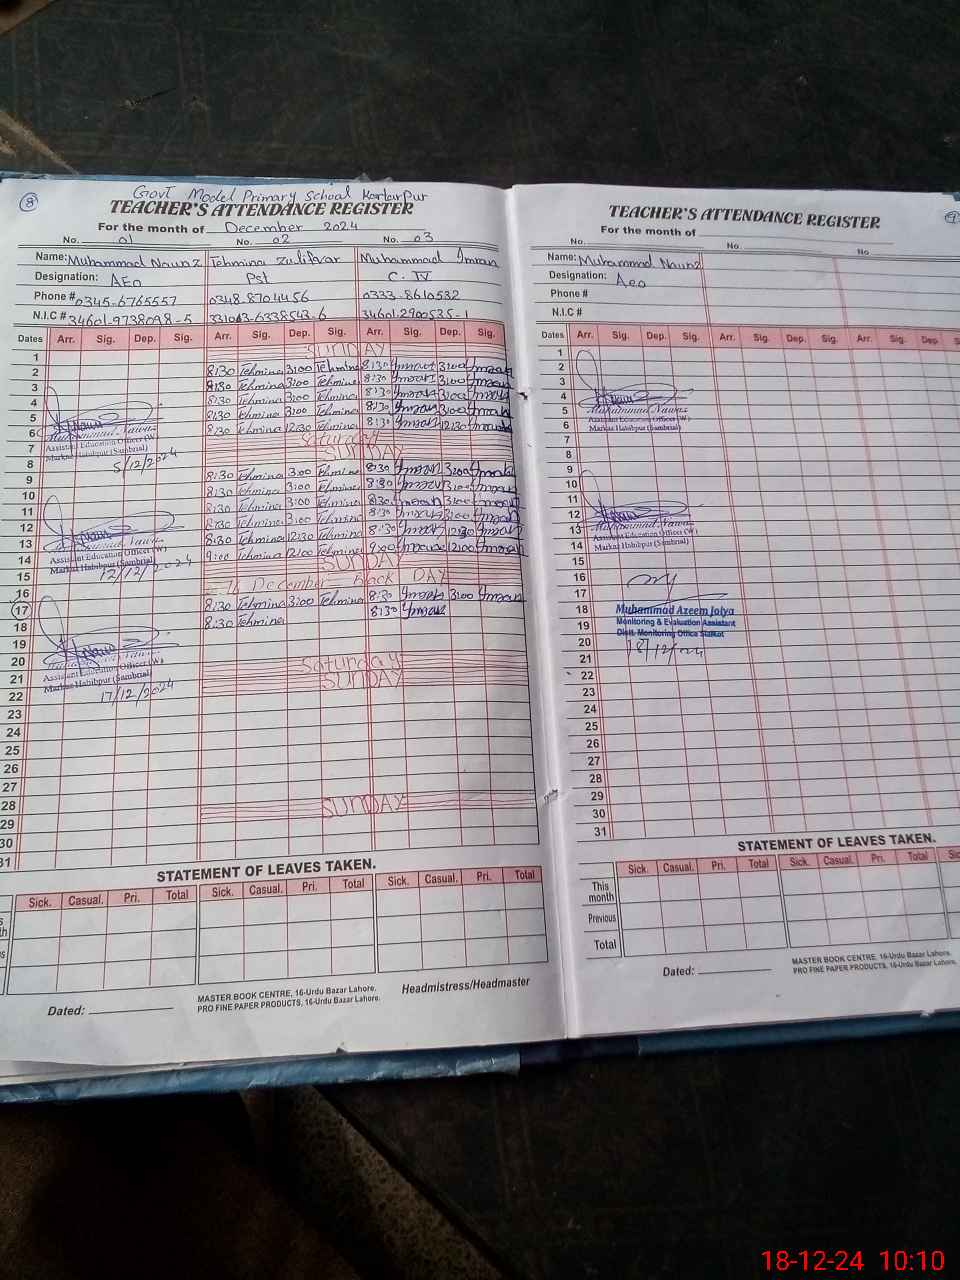 8
Govt Model Primary School Kartarpur
TEACHER'S ATTENDANCE REGISTER
For the month of December 2024
No. 01 No. 02 No. 03
Name: Muhammad Nawaz Tehmina Zulifqar Muhammad Imran
Designation: AEo Pst C.IV
Phone # 0345-6765557 0348-8704456 0333-8610532
N.I.C # 34601-9738098-5 34601-2900535-1
Dates Arr. Sig. Dep. Sig. Arr. Sig. Dep. Sig. Arr. Sig. Dep. Sig.
1 SUNDAY
2 8:30 Tehmina 3:00 Tehmina 8:30 Imran 3:00 Imran
3 8:30 Tehmina 3:00 Tehmina 8:30 Imran 3:00 Imran
4 8:30 Tehmina 3:00 Tehmina 8:30 Imran 3:00 Imran
5 8:30 Tehmina 3:00 Tehmina 8:30 Imran 3:00 Imran
6 8:30 Tehmina 12:30 Tehmina 8:30 Imran 12:30 Imran
Muhammad Nawaz
Assistant Education Officer (W)
Markaz Habibpur (Sambrial)
5/12/2024
7 Saturday
8 SUNDAY
9 8:30 Tehmina 3:00 Tehmina 8:30 Imran 3:00 Imran
10 8:30 Tehmina 3:00 Tehmina 8:30 Imran 3:00 Imran
11 8:30 Tehmina 3:00 Tehmina 8:30 Imran 3:00 Imran
12 8:30 Tehmina 3:00 Tehmina 8:30 Imran 3:00 Imran
13 8:30 Tehmina 12:30 Tehmina 8:30 Imran 12:30 Imran
14 9:00 Tehmina 12:00 Tehmina 9:00 Imran 12:00 Imran
Muhammad Nawaz
Assistant Education Officer (W)
Markaz Habibpur (Sambrial)
12/12/2024
15 SUNDAY
16 16 December Black DAY
17 8:30 Tehmina 3:00 Tehmina 8:30 Imran 3:00 Imran
18 8:30 Tehmina 8:30 Imran
19
20
Muhammad Nawaz
Assistant Education Officer (W)
Markaz Habibpur (Sambrial)
17/12/2024
21 Saturday
22 SUNDAY
23
24
25
26
27
28
29 SUNDAY
30
31
STATEMENT OF LEAVES TAKEN.
Sick. Casual. Pri. Total Sick. Casual. Pri. Total Sick. Casual. Pri. Total
Dated:
MASTER BOOK CENTRE, 16-Urdu Bazar Lahore.
PRO FINE PAPER PRODUCTS, 16-Urdu Bazar Lahore.
Headmistress/Headmaster
9
TEACHER'S ATTENDANCE REGISTER
For the month of
No. No. No
Name: Muhammad Nawaz
Designation: Aeo
Phone #
N.I.C #
Dates Arr. Sig. Dep. Sig. Arr. Sig. Dep. Sig. Arr. Sig. Dep. S
1
2
3
4
5
6
Muhammad Nawaz
Assistant Education Officer (W)
Markaz Habibpur (Sambrial)
7
8
9
10
11
12
13
14
Muhammad Nawaz
Assistant Education Officer (W)
Markaz Habibpur (Sambrial)
15
16
17
18
19
20
Muhammad Azeem Joiya
Monitoring & Evaluation Assistant
Distt. Monitoring Office Sialkot
18/12/24
21
22
23
24
25
26
27
28
29
30
31
STATEMENT OF LEAVES TAKEN.
Sick. Casual. Pri. Total Sick. Casual. Pri. Total Sic
This month
Previous
Total
Dated:
MASTER BOOK CENTRE, 16-Urdu Bazar Lahore.
PRO FINE PAPER PRODUCTS, 16-Urdu Bazar Lahore.
18-12-24 10:10